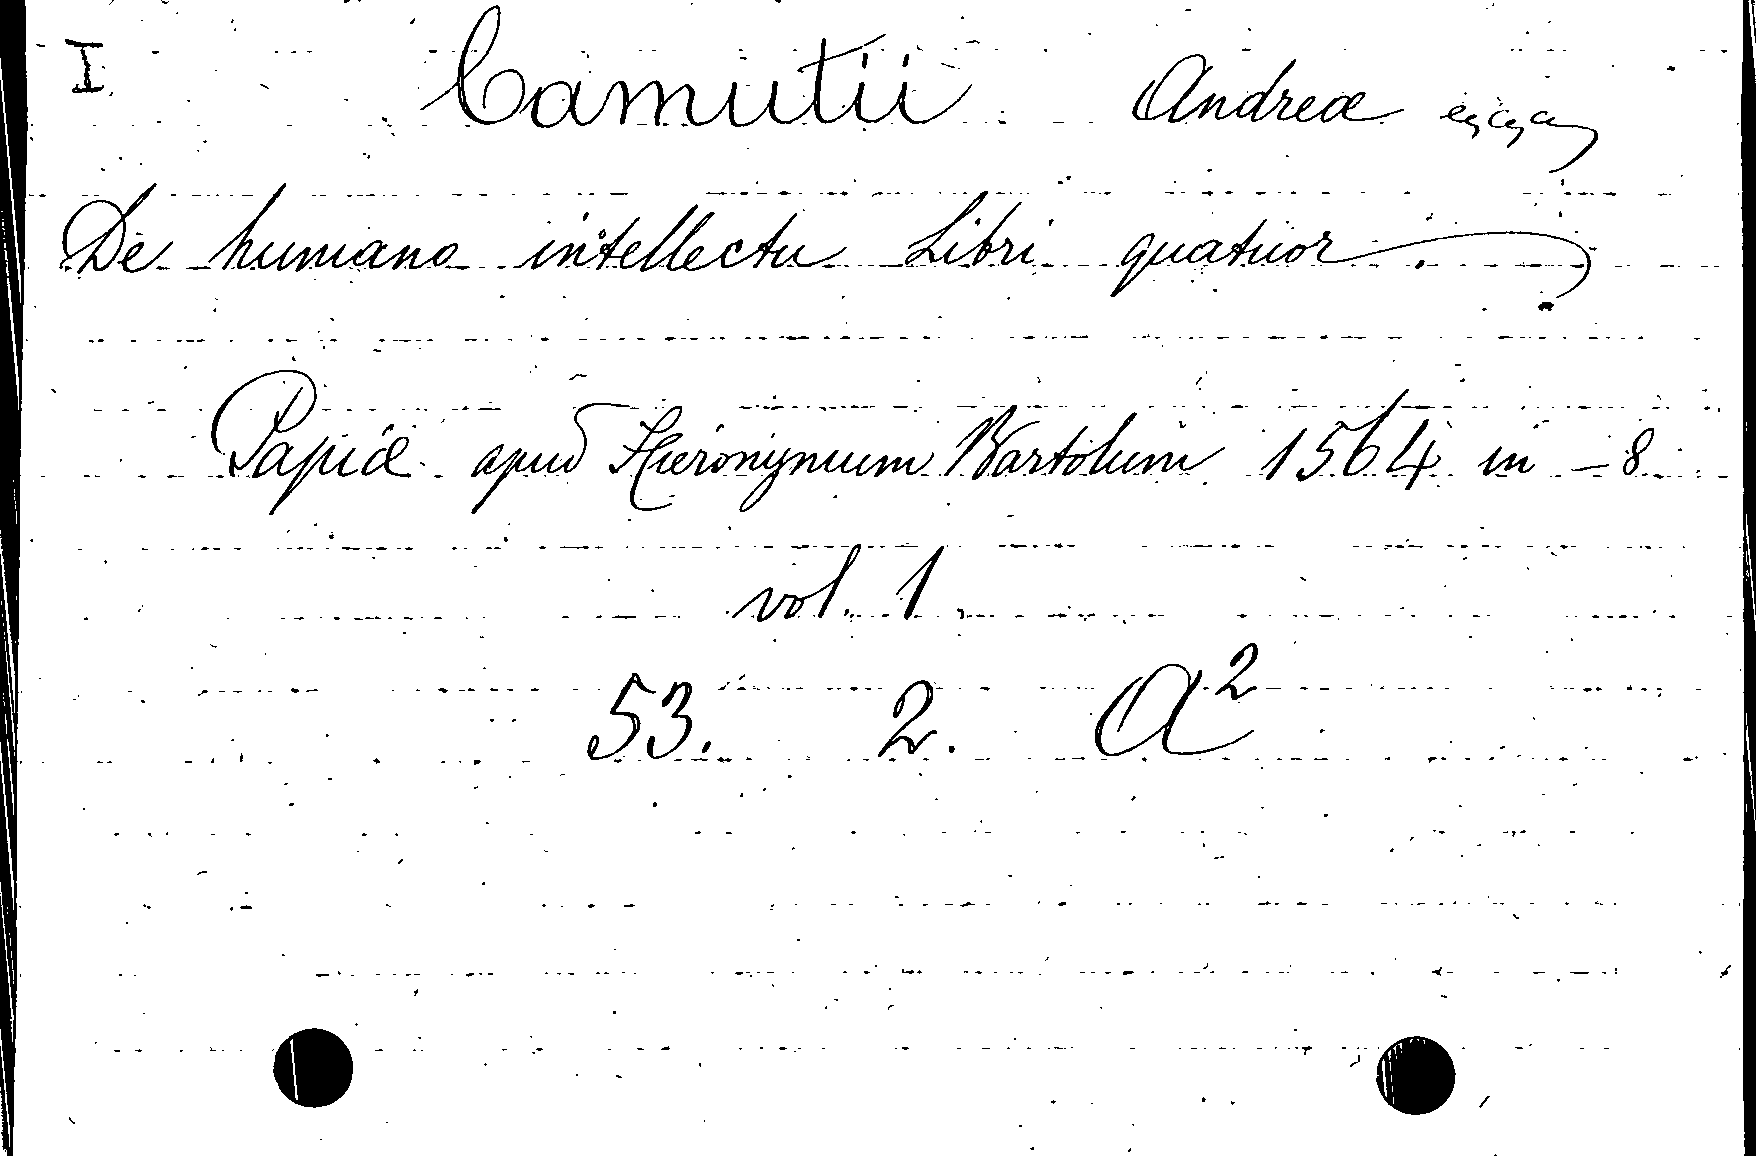 I Camutii Andreæ
De humano intellectu Libri quatuor
Papiæ apud Hieronymum Bartolum 1564 in-8
vol. 1
53. 2. A²